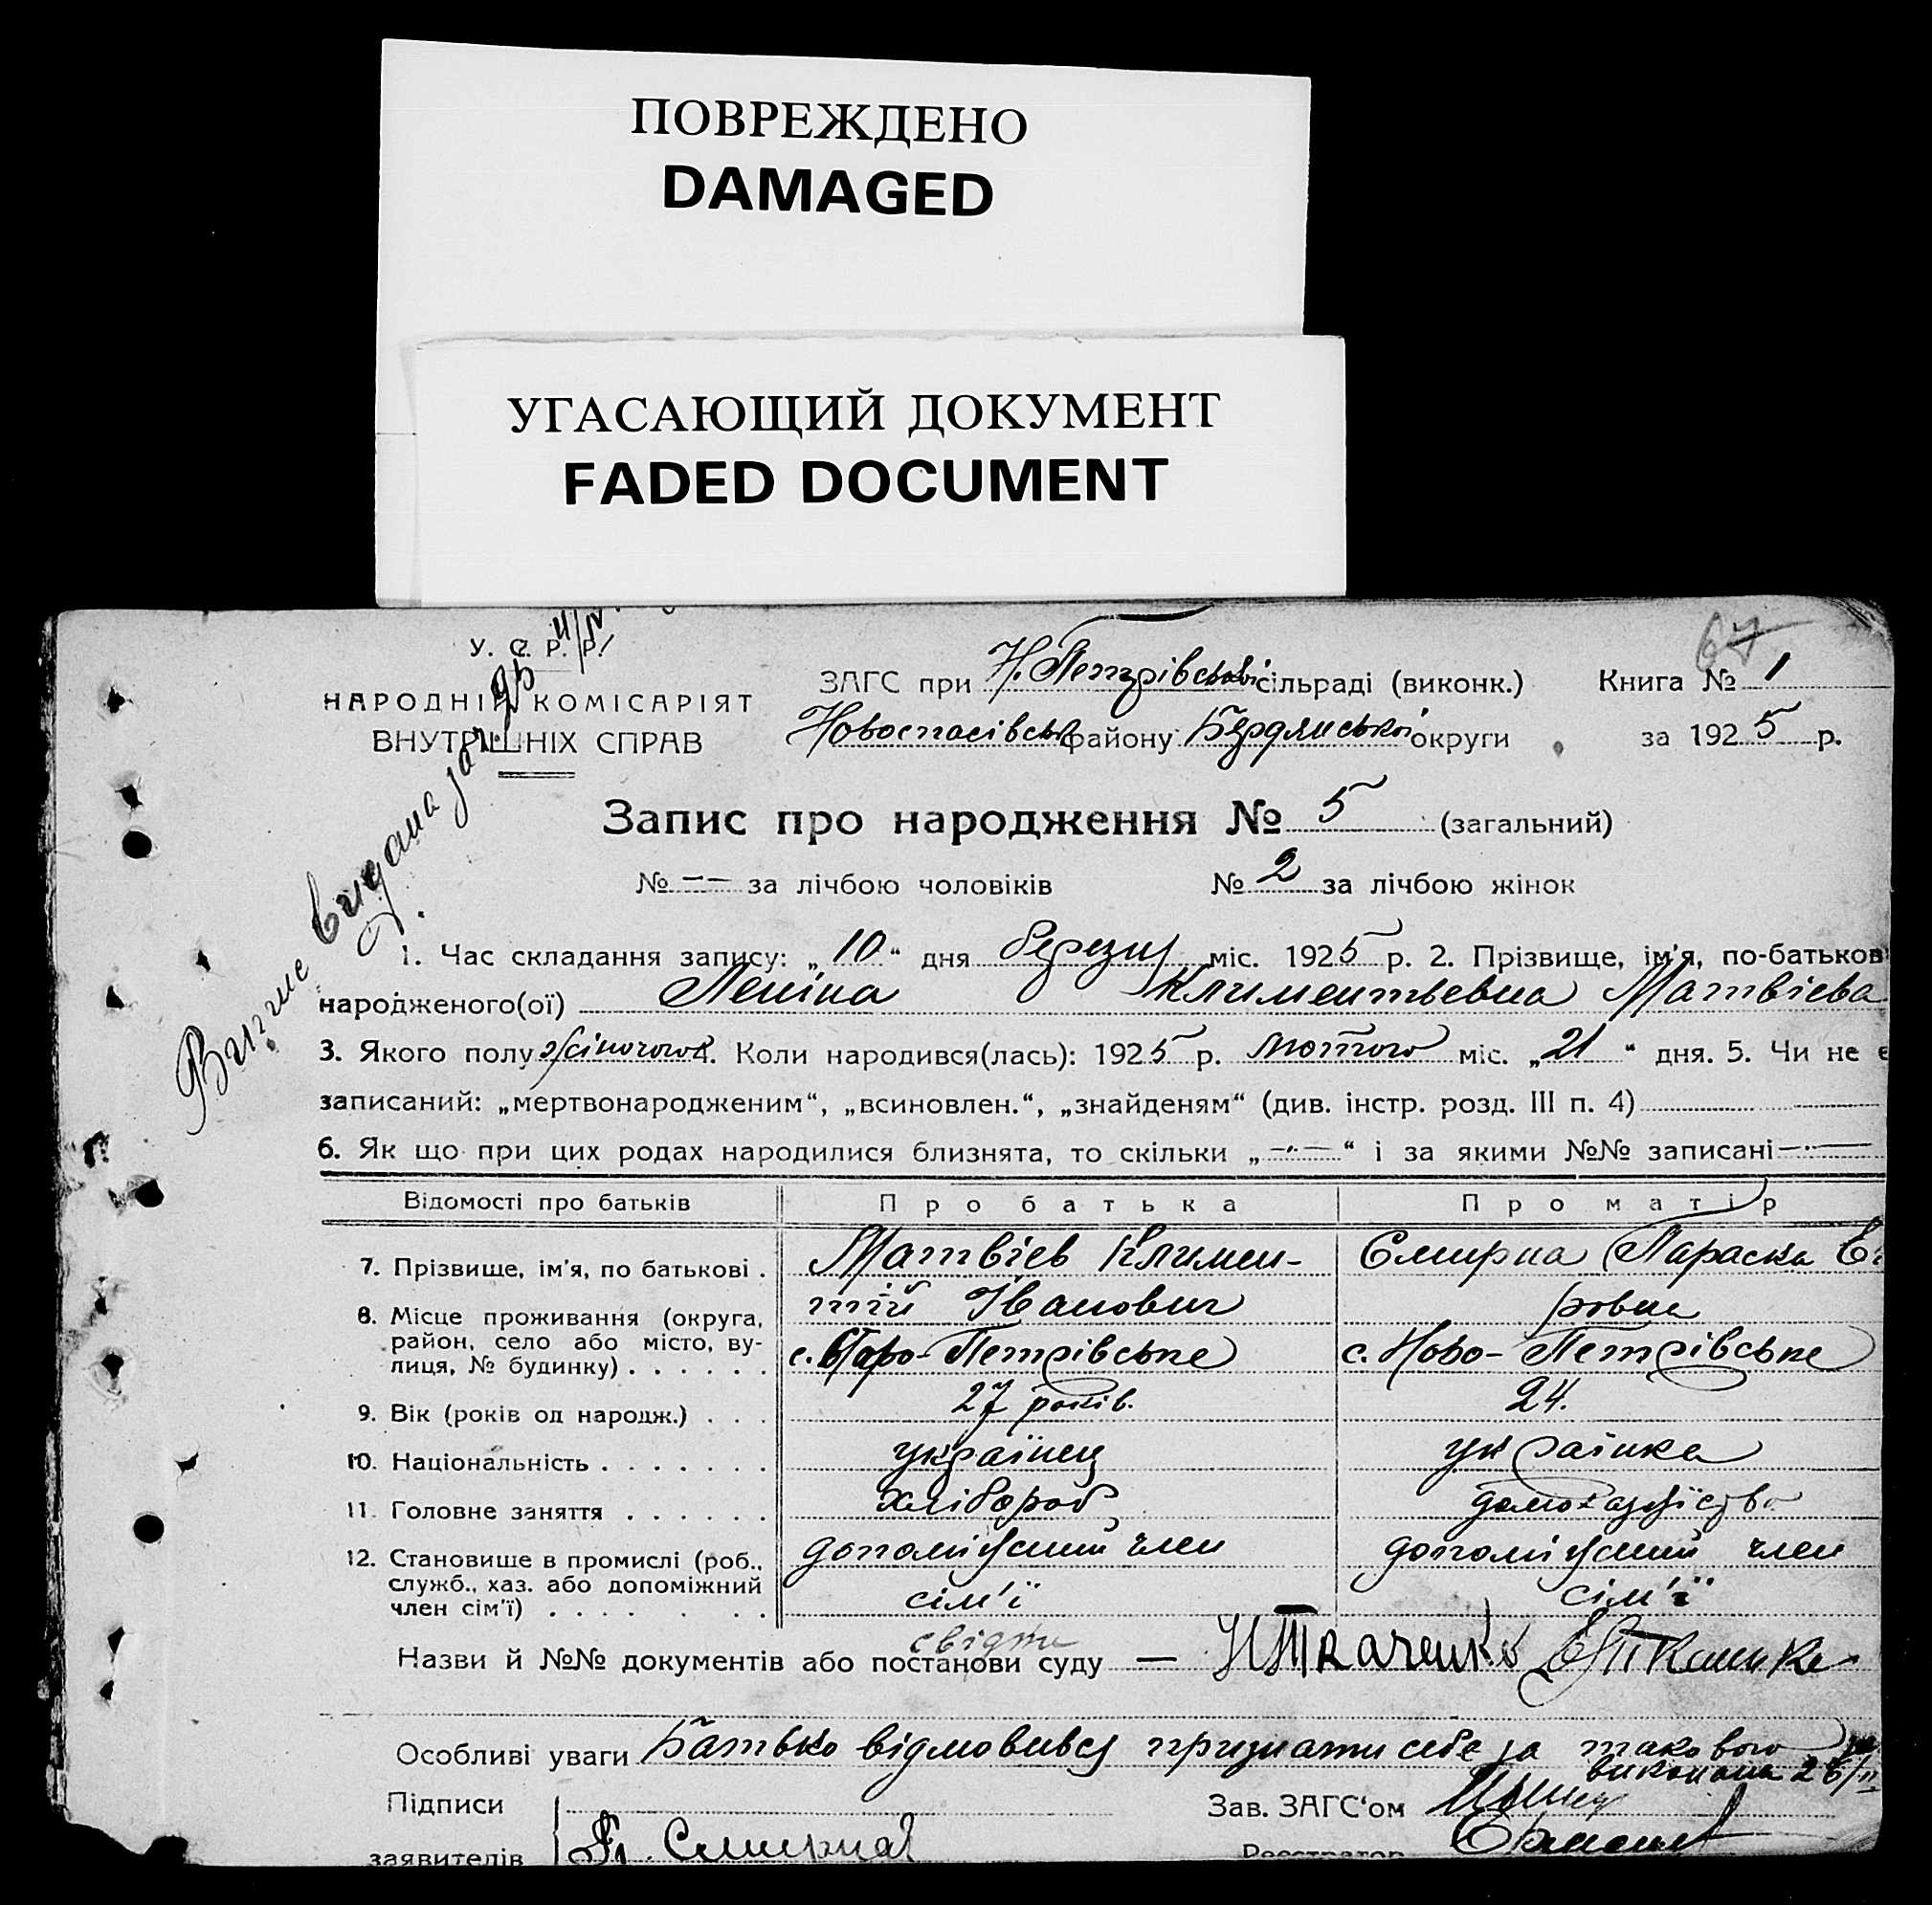 ПОВРЕЖДЕНО
DAMAGED
УГАСАЮЩИЙ ДОКУМЕНТ
FADED DOCUMENT
67
У. С. Р. Р.
НАРОДНІЙ КОМІСАРІЯТ
ВНУТРІШНІХ СПРАВ
ЗАГС при Н. Петрівській сільраді (виконк.) Книга № 1
Новоспасівськ району Бердянської округи за 1925 р.
Запис про народження № 5 (загальний)
№ -- за лічбою чоловіків № 2 за лічбою жінок
Випис видана
1. Час складання запису: „10“ дня березня міс. 1925 р. 2. Прізвище, ім'я, по-батьков
народженого(ої) Леніна Климентьевна Матвієва
3. Якого полу жіночого 4. Коли народився(лась): 1925 р. лютого міс. „21“ дня. 5. Чи не є
записаний: „мертвонародженим“, „всиновлен.“, „знайденям“ (див. інстр. розд. III п. 4)
6. Як що при цих родах народилися близнята, то скільки „—“ і за якими №№ записані —
Відомості про батьків Про батька Про матір
7. Прізвище, ім'я, по батькові . Матвієв Климен- Смирна Параска
тій Іванович ровна
8. Місце проживання (округа, район, село або місто, ву-
лиця, № будинку) . . . . . . с. Старо-Петрівське с. Ново-Петрівське
9. Вік (років од народж.) . . . 27 років. 24.
10. Національність . . . . . . . українец українка
11. Головне заняття . . . . . . хлібороб домохазяйство
12. Становище в промислі (роб., допоміжний член допоміжний член
служб., хаз. або допоміжний
член сім'ї) . . . . . . . сім'ї сім'ї
свідки
Назви й №№ документів або постанови суду — Ткаченко
Особливі уваги Батько відмовився признати себе за такового
виконана
Підписи Зав. ЗАГС'ом
заявителів Смирна Реєстратор